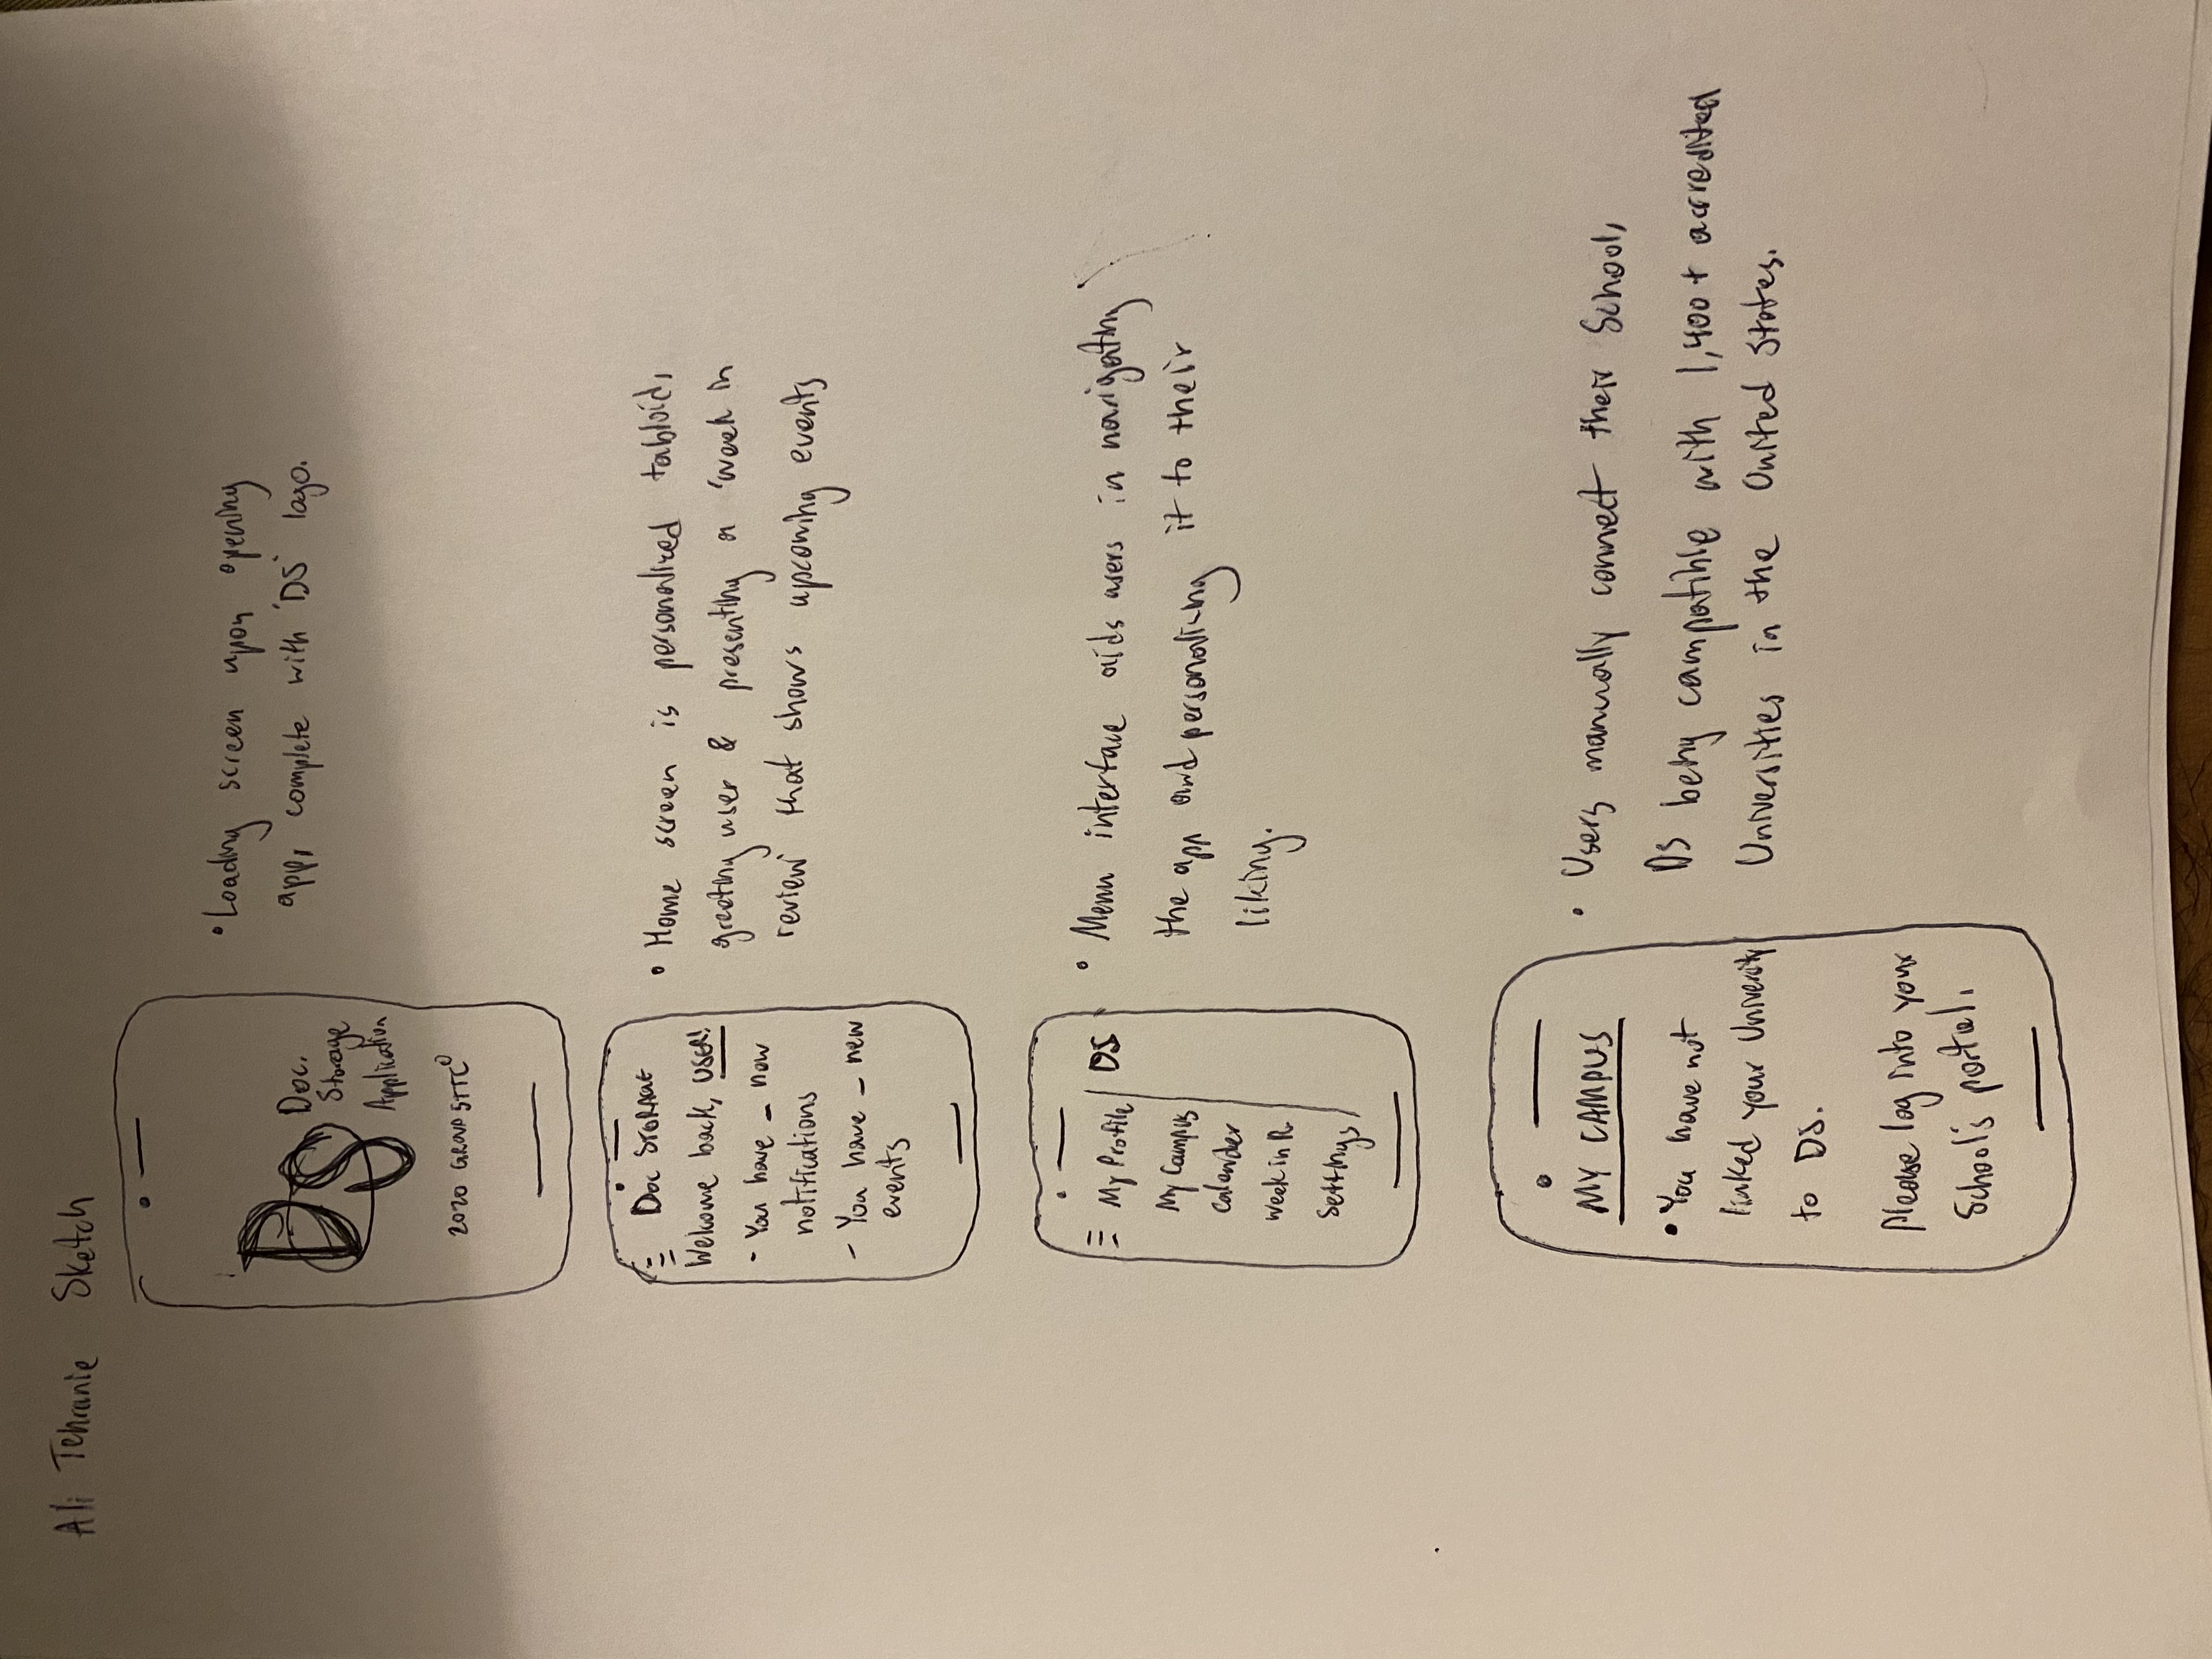 Ali Tehranie Sketch
DS
Doc.
Storage
Application
2020 GROUP 5TTC©
• Loading screen upon opening
app, complete with 'DS' logo.
DOC STORAGE
Welcome back, USER!
- You have _ new
notifications
- You have _ new
events
• Home screen is personalized tabloid,
greeting user & presenting a 'week in
review' that shows upcoming events
My Profile
My Campus
Calender
Week in R.
Settings
DS
• Menu interface aids users in navigating
the app and personalizing it to their
liking.
MY CAMPUS
• You have not
linked your University
to DS.
Please log into your
School's portal.
• Users manually connect their School,
DS being compatible with 1,400+ accredited
Universities in the United States.